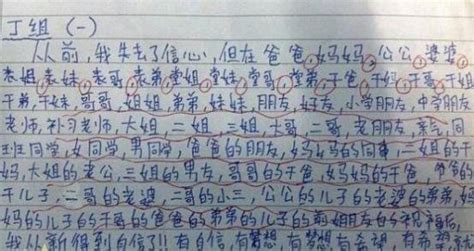 丁组 (一)
从前,我失去了信心,但在爸爸,妈妈,公公,婆婆
表姐,表妹,表哥,表弟,堂姐,堂妹,堂哥,堂弟,干爸,干妈,干哥,干姐
干弟,干妹,哥哥,姐姐,弟弟,妹妹,朋友,好友,小学朋友,中学朋友
老师,补习老师,大姐,二姐,三姐,大哥,二哥,老朋友,亲气,同
班同学,女同学,男同学,爸爸的朋友,妈妈的同事,二姐的干
妈,大姐的老公,三姐的男友,哥哥的干爸,爷爷的
干儿子,二哥的老婆,二哥的小三,公公的儿子的老婆的弟弟,妈
妈的儿子的干哥的爸爸的弟弟的儿子的前女友的祝福后,
我从新得到自信了!!有自信,有梦想